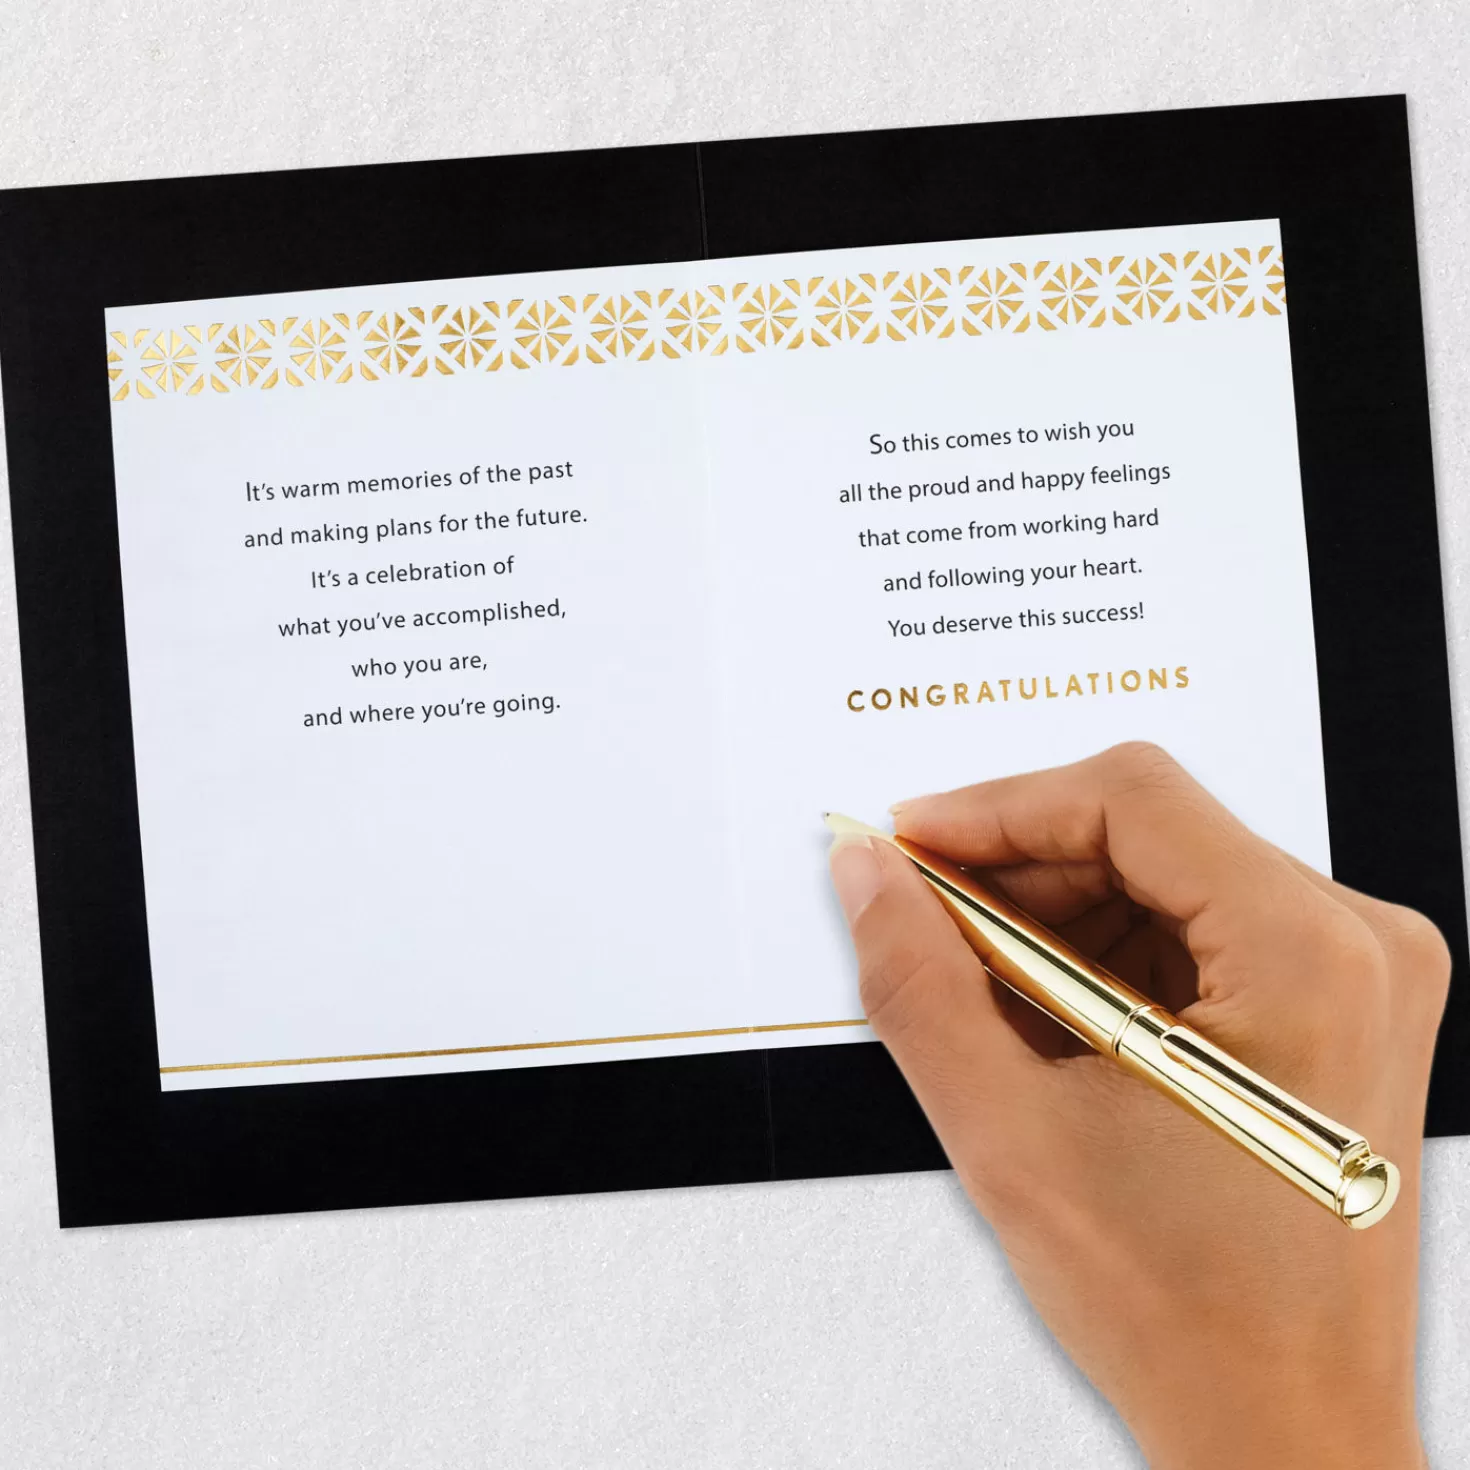 It's warm memories of the past
and making plans for the future.
It's a celebration of
what you've accomplished,
who you are,
and where you're going.
So this comes to wish you
all the proud and happy feelings
that come from working hard
and following your heart.
You deserve this success!
CONGRATULATIONS